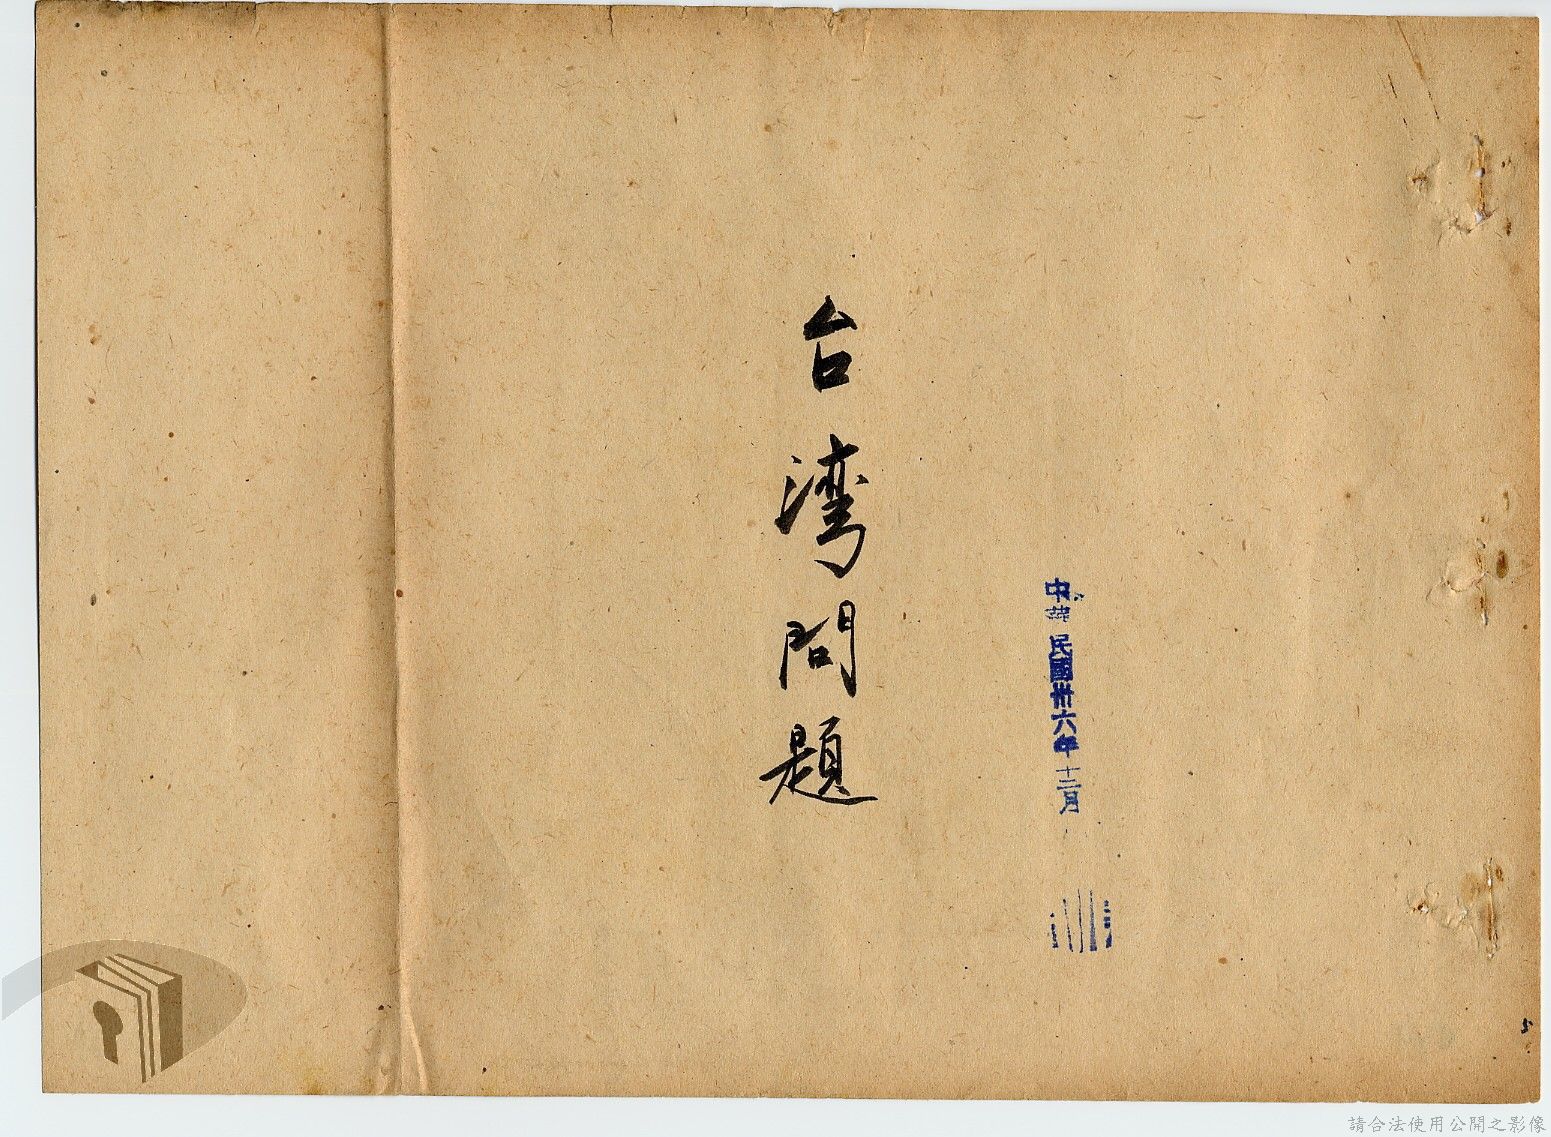 中華民國卅六年十二月
台湾問題
5
請合法使用公開之影像